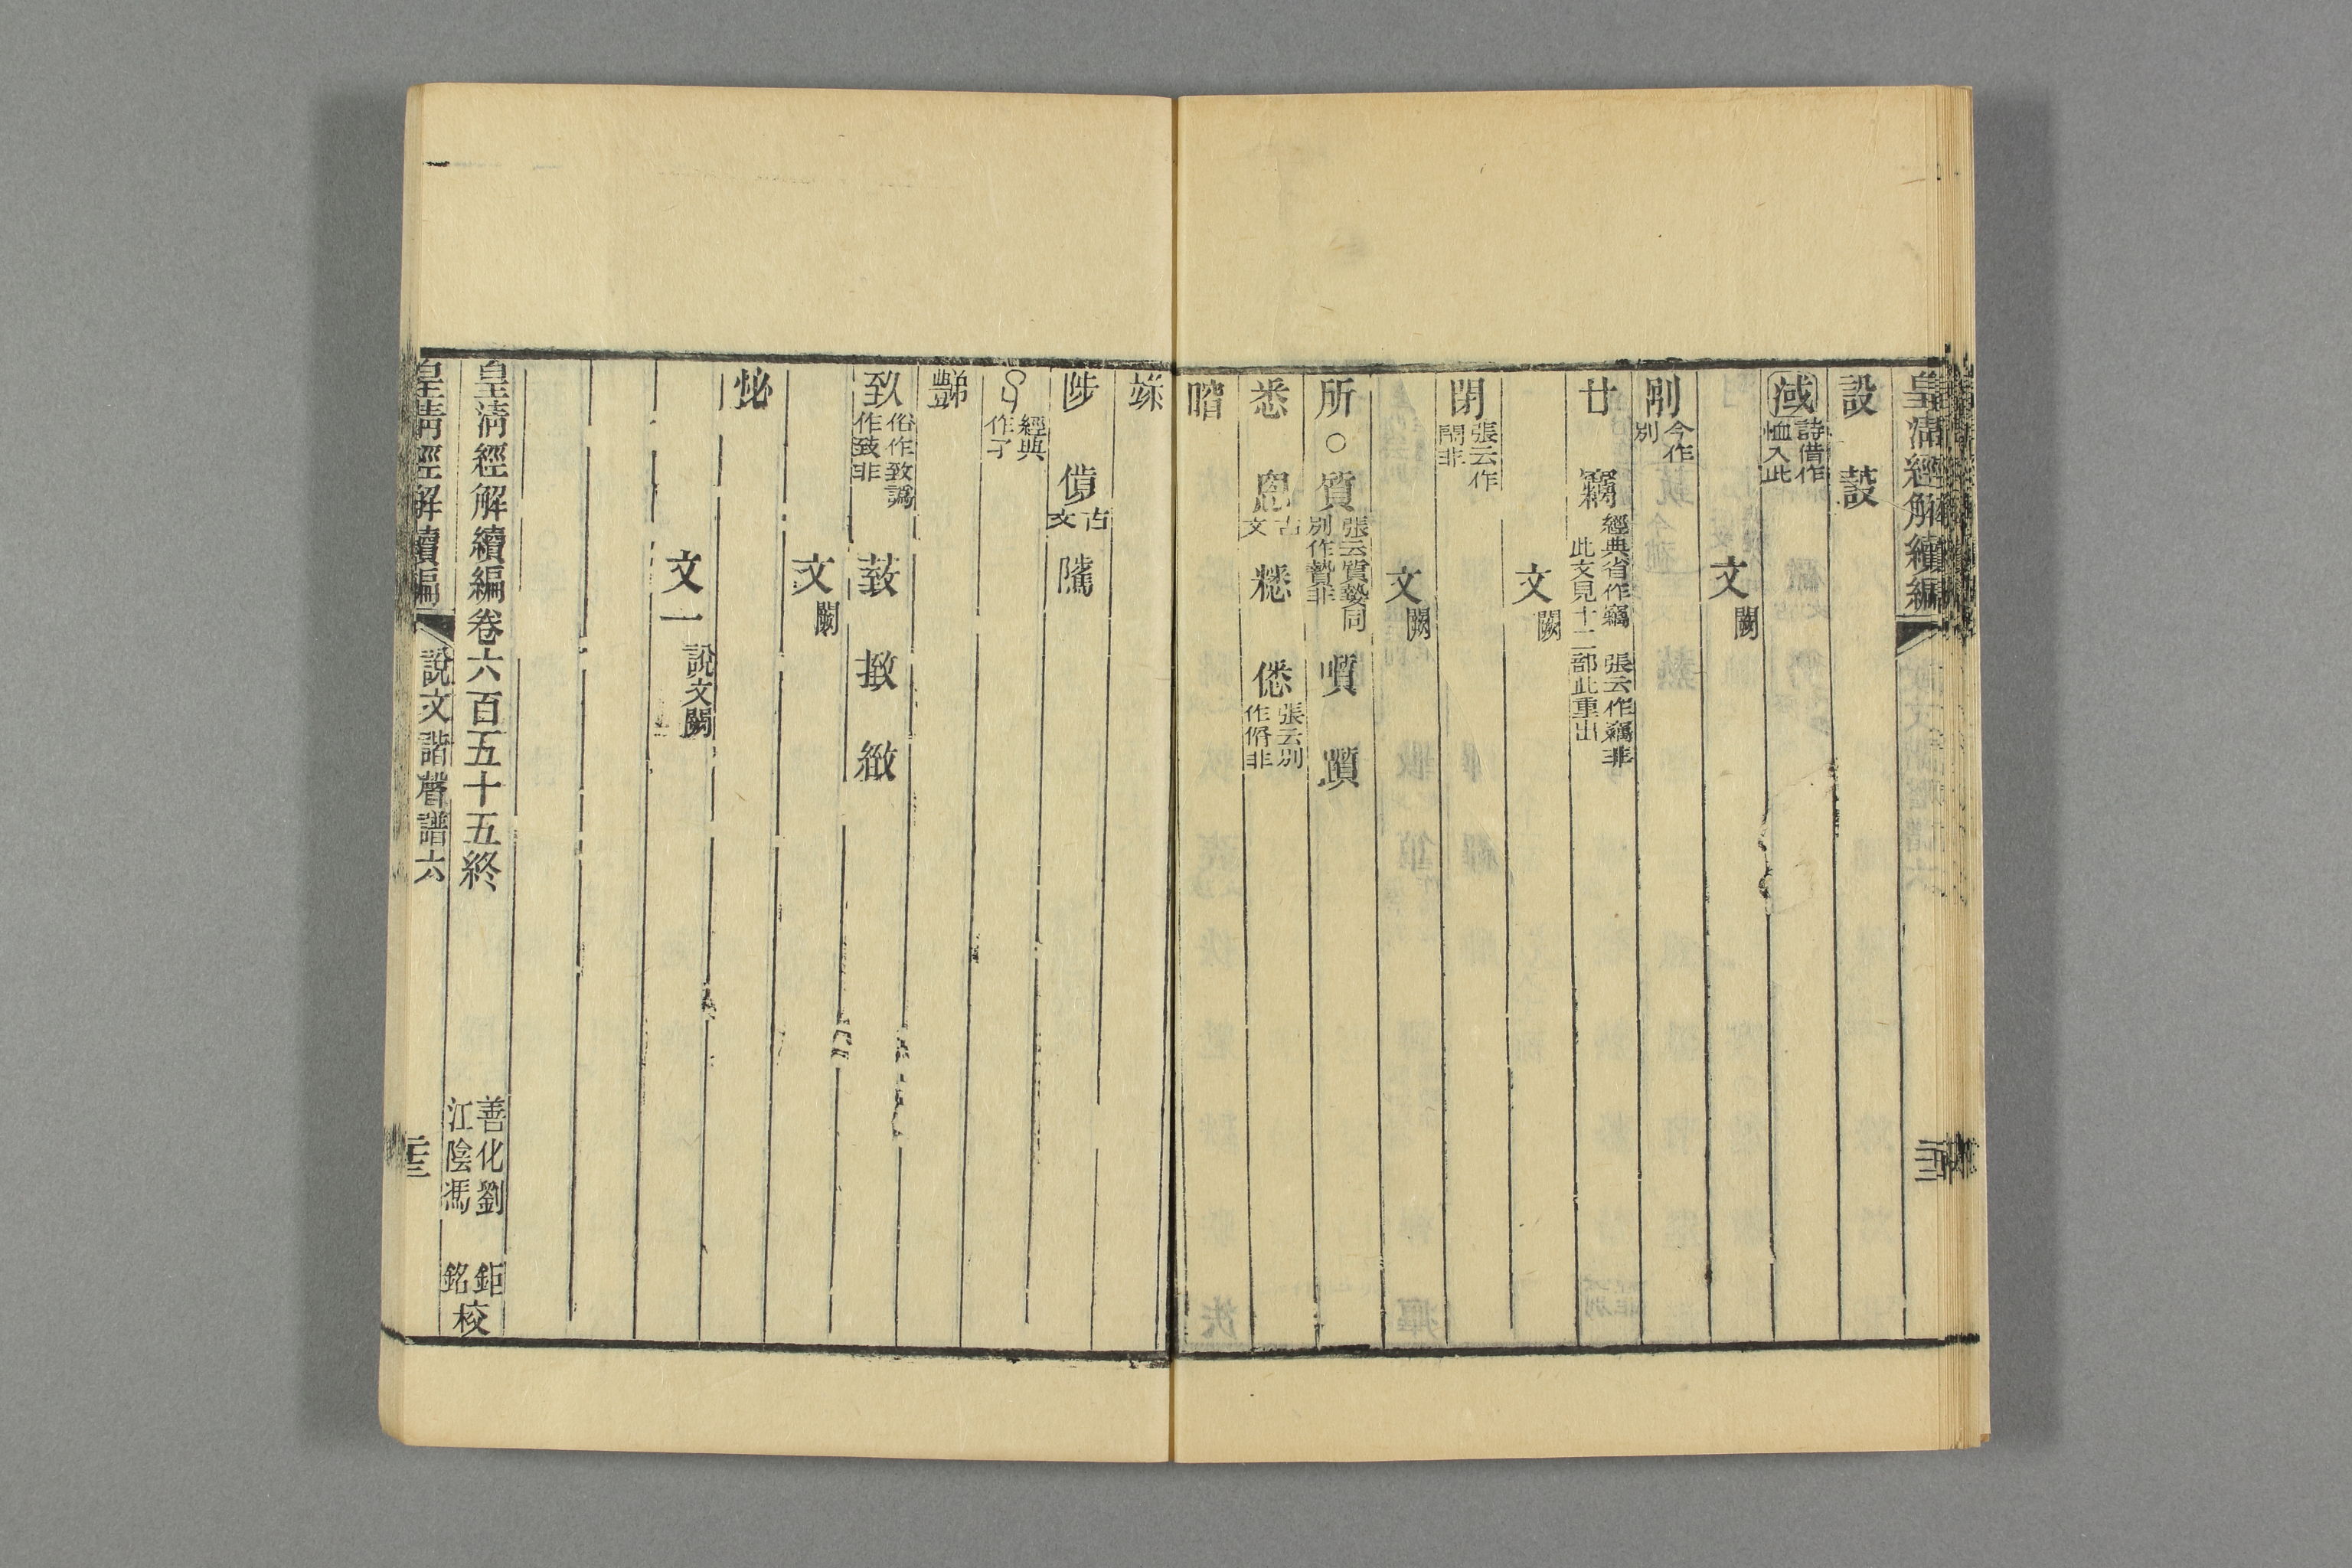 皇清經解續編
設 蔎
淢 詩借作恤入此
文闕
刐 今作別
廿 竊 經典省作竊 張云作竊非此文見十二部此重出
文闕
閉 張云作閇非
文闕
所 ○ 質 張云質贄同別作贄非 㗧 躓
悉 古文 𥻦 僁 張云別作偦非
陟 古文 隲
經典作孑
致 俗作致譌作致非 菣 撳 緻
文闕
毖
文一 說文闕
皇清經解續編卷六百五十五終 善化劉鉅江陰馮銘校
皇清經解續編 說文諧聲譜六